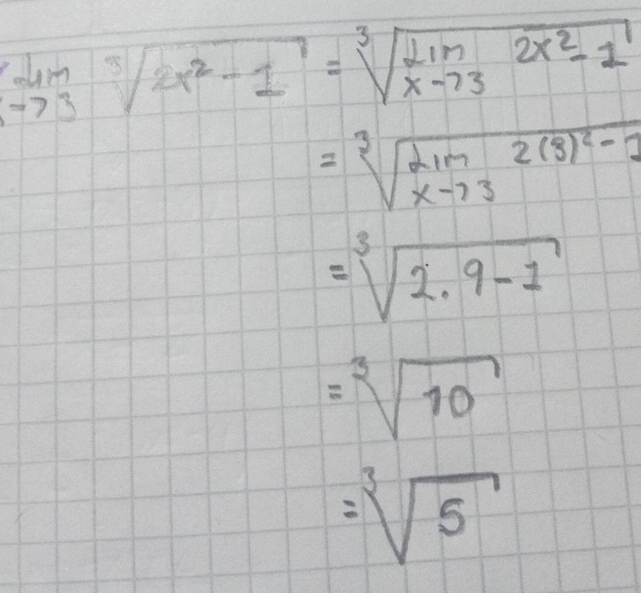 Lim x→3 ∛(2x² - 1) = ∛(Lim x→3 2x² - 1)
= ∛(Lim x→3 2(3)² - 1)
= ∛(2.9 - 1)
= ∛10
= ∛5